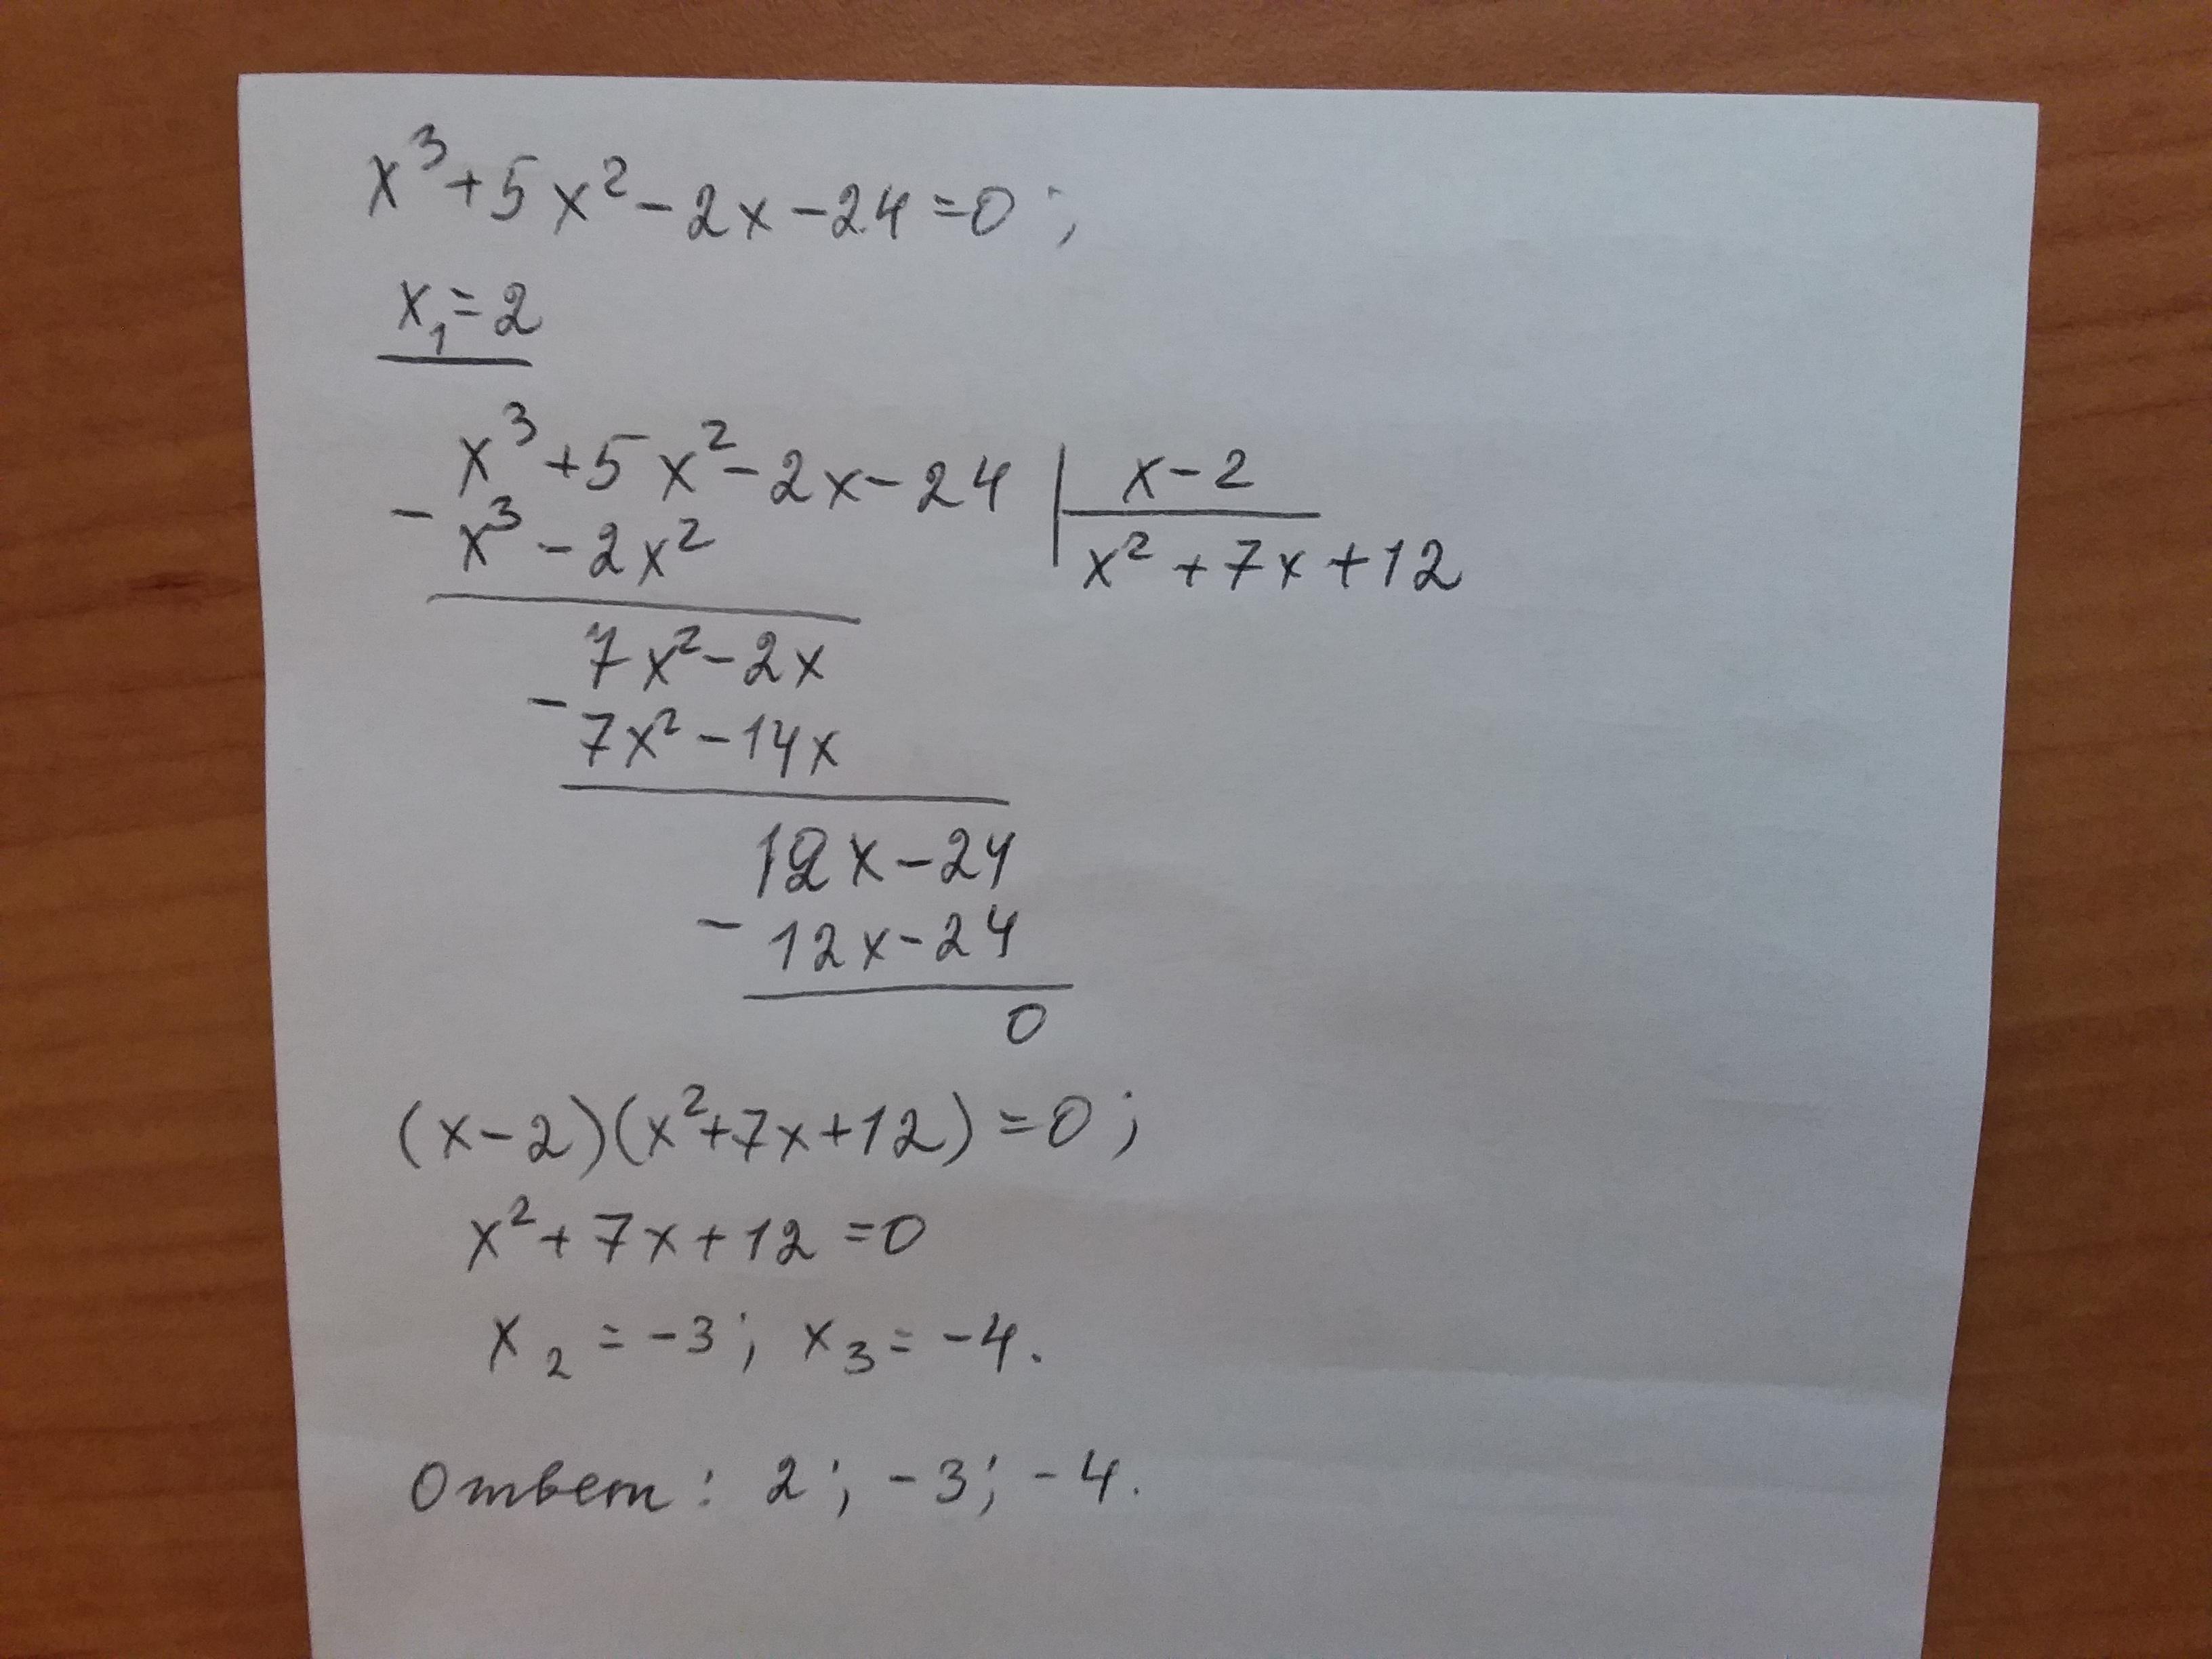 x³+5x²-2x-24=0;
x₁=2
x³+5x²-2x-24 | x-2
- x³-2x² | x²+7x+12
7x²-2x
- 7x²-14x
12x-24
- 12x-24
0
(x-2)(x²+7x+12)=0;
x²+7x+12=0
x₂=-3; x₃=-4.
Ответ: 2; -3; -4.